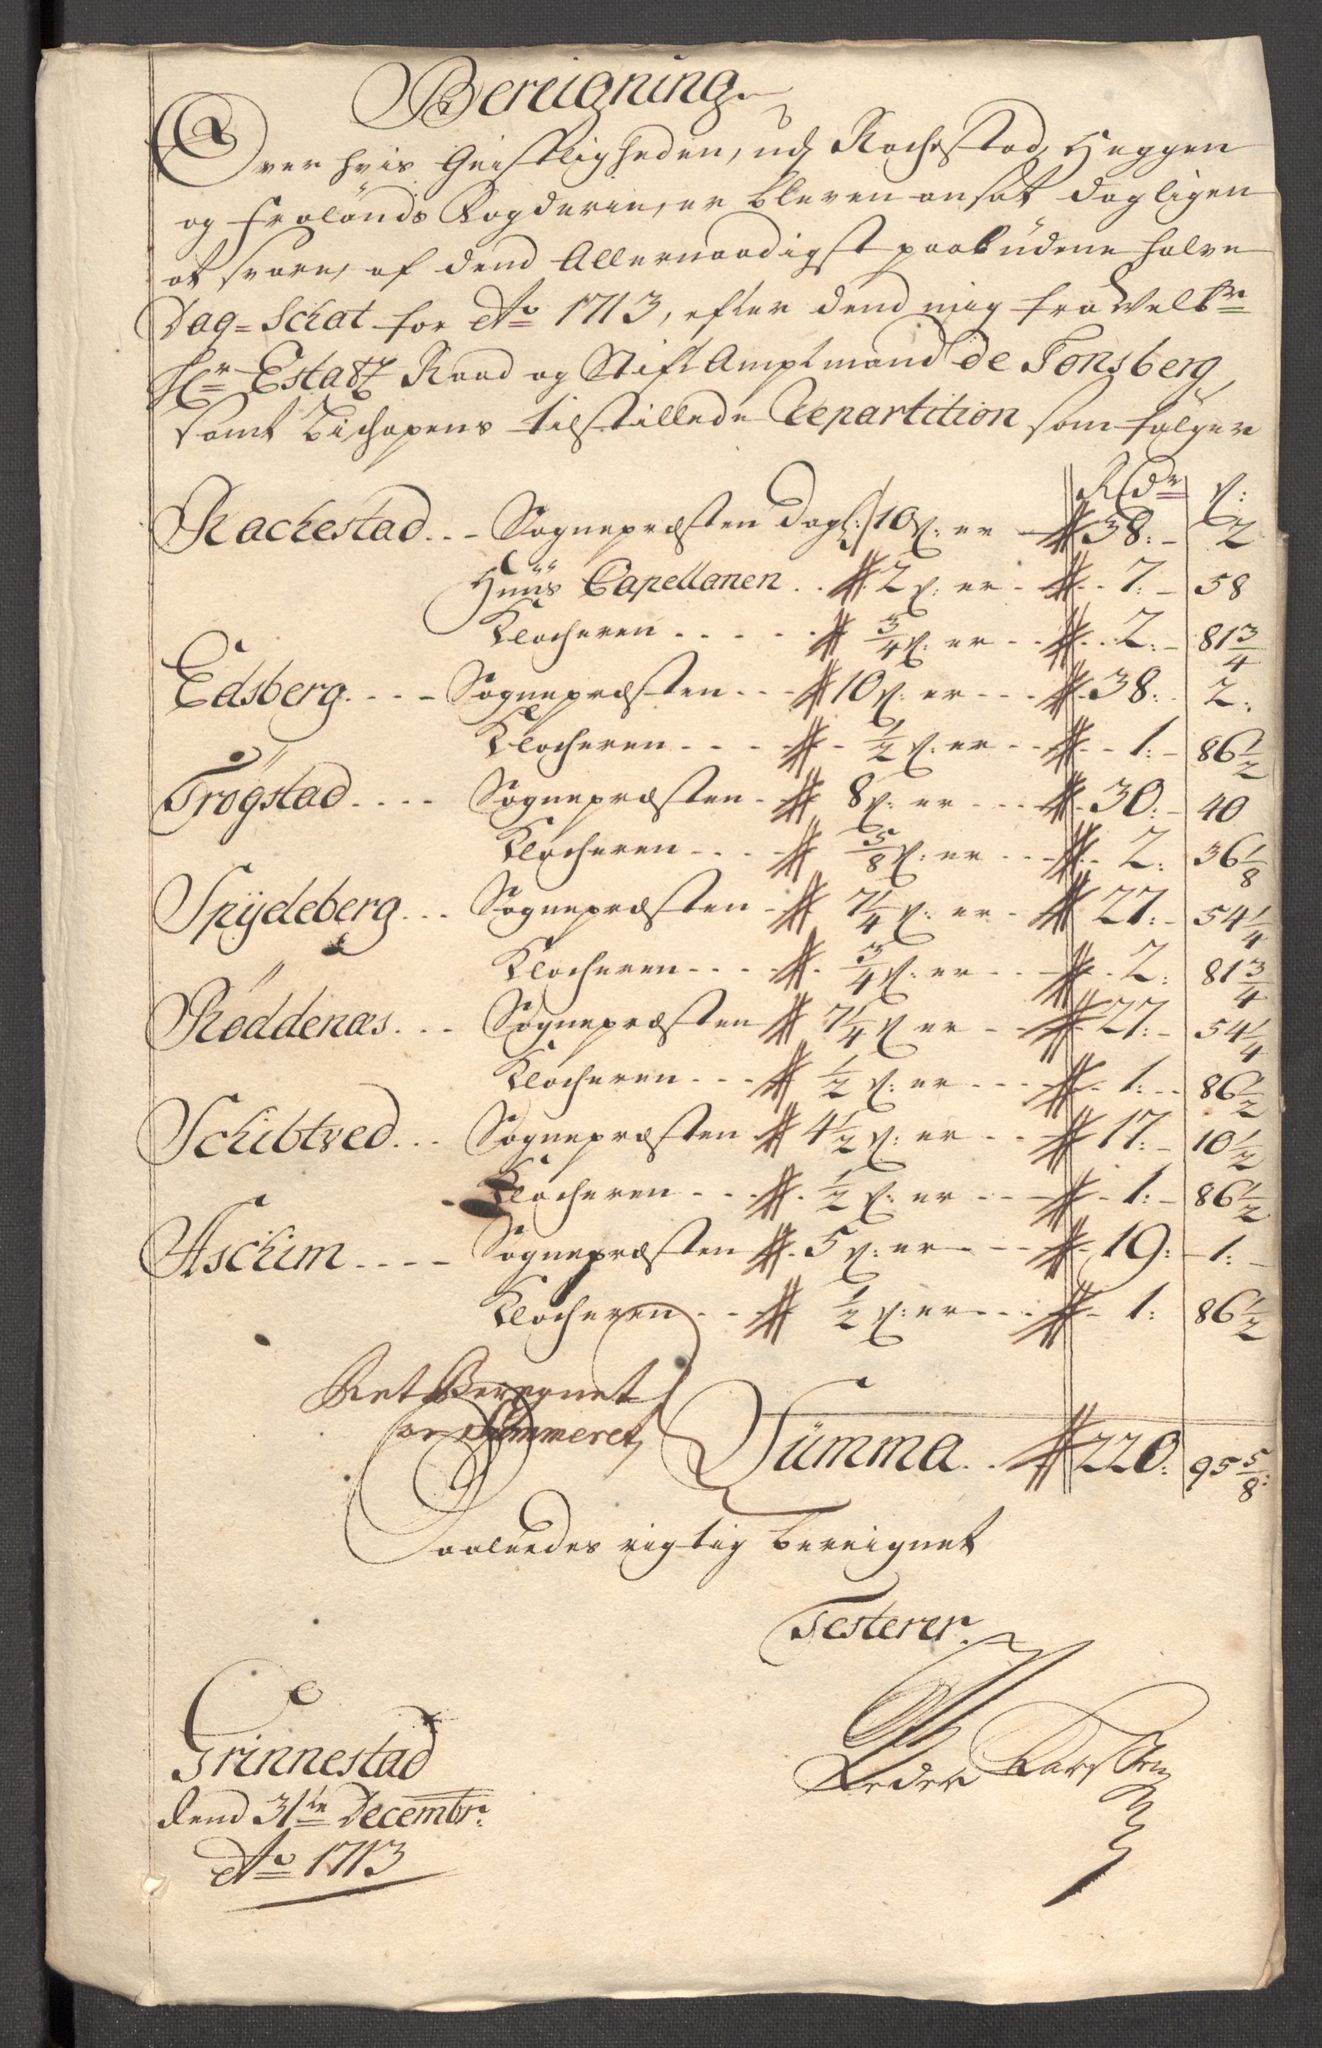 Bereigning
Over hvis Geistligheden, udj Rachestad, Heggen
og Frølands Fogderie, er bleven ansat dagligen
at svare, af dend Allernaadigst paabudene halve
Dag=Schat for Ao 1713, efter dend mig fra Welbr
Hr Estatz Raad og StiftAmptmand de Tonsberg,
samt Bischopens tilstillede Repartition som følger
Rdr ß:
Rachestad... Sognepræsten dagl: 10 ß: er 38: 2
Huus Capellanen .. 2 ß: er .. 7: 58
Klocheren ..... 3/4 ß: er .. 2: 81 3/4
Edsberg.... Sognepræsten ... 10 ß: er ... 38: 2:
Klocheren .... 1/2 ß: er .. 1: 86 1/2
Trøgstad.... Sognepræsten . 8 ß: er ... 30: 40
Klocheren .... 5/8 ß: er ... 2: 36 1/8
Spÿdeberg... Sognepræsten . 7 1/4 ß: er . 27: 54 1/4
Klocheren .... 3/4 ß: er ... 2: 81 3/4
Røddenæs... Sognepræsten 7 1/4 ß er .. 27: 54 1/4
Klocheren ... 1/2 ß: er ... 1: 86 1/2
Schibtved... Sognepræsten 4 1/2 ß: er .. 17: 10 1/2
Klocheren ... 1/2 ß: er ... 1: 86 1/2
Aschim.... Sognepræsten 5 ß: er ... 19: 1:
Klocheren ... 1/2 ß: er ... 1: 86 1/2
Ret Beregnet
og Summeret,
Summa.. 220: 95 5/8:
Saaleedes rigtig bereignet
Testerer
Grinnestad
dend 31te Decembr:
Ao 1713
Peder Karsten